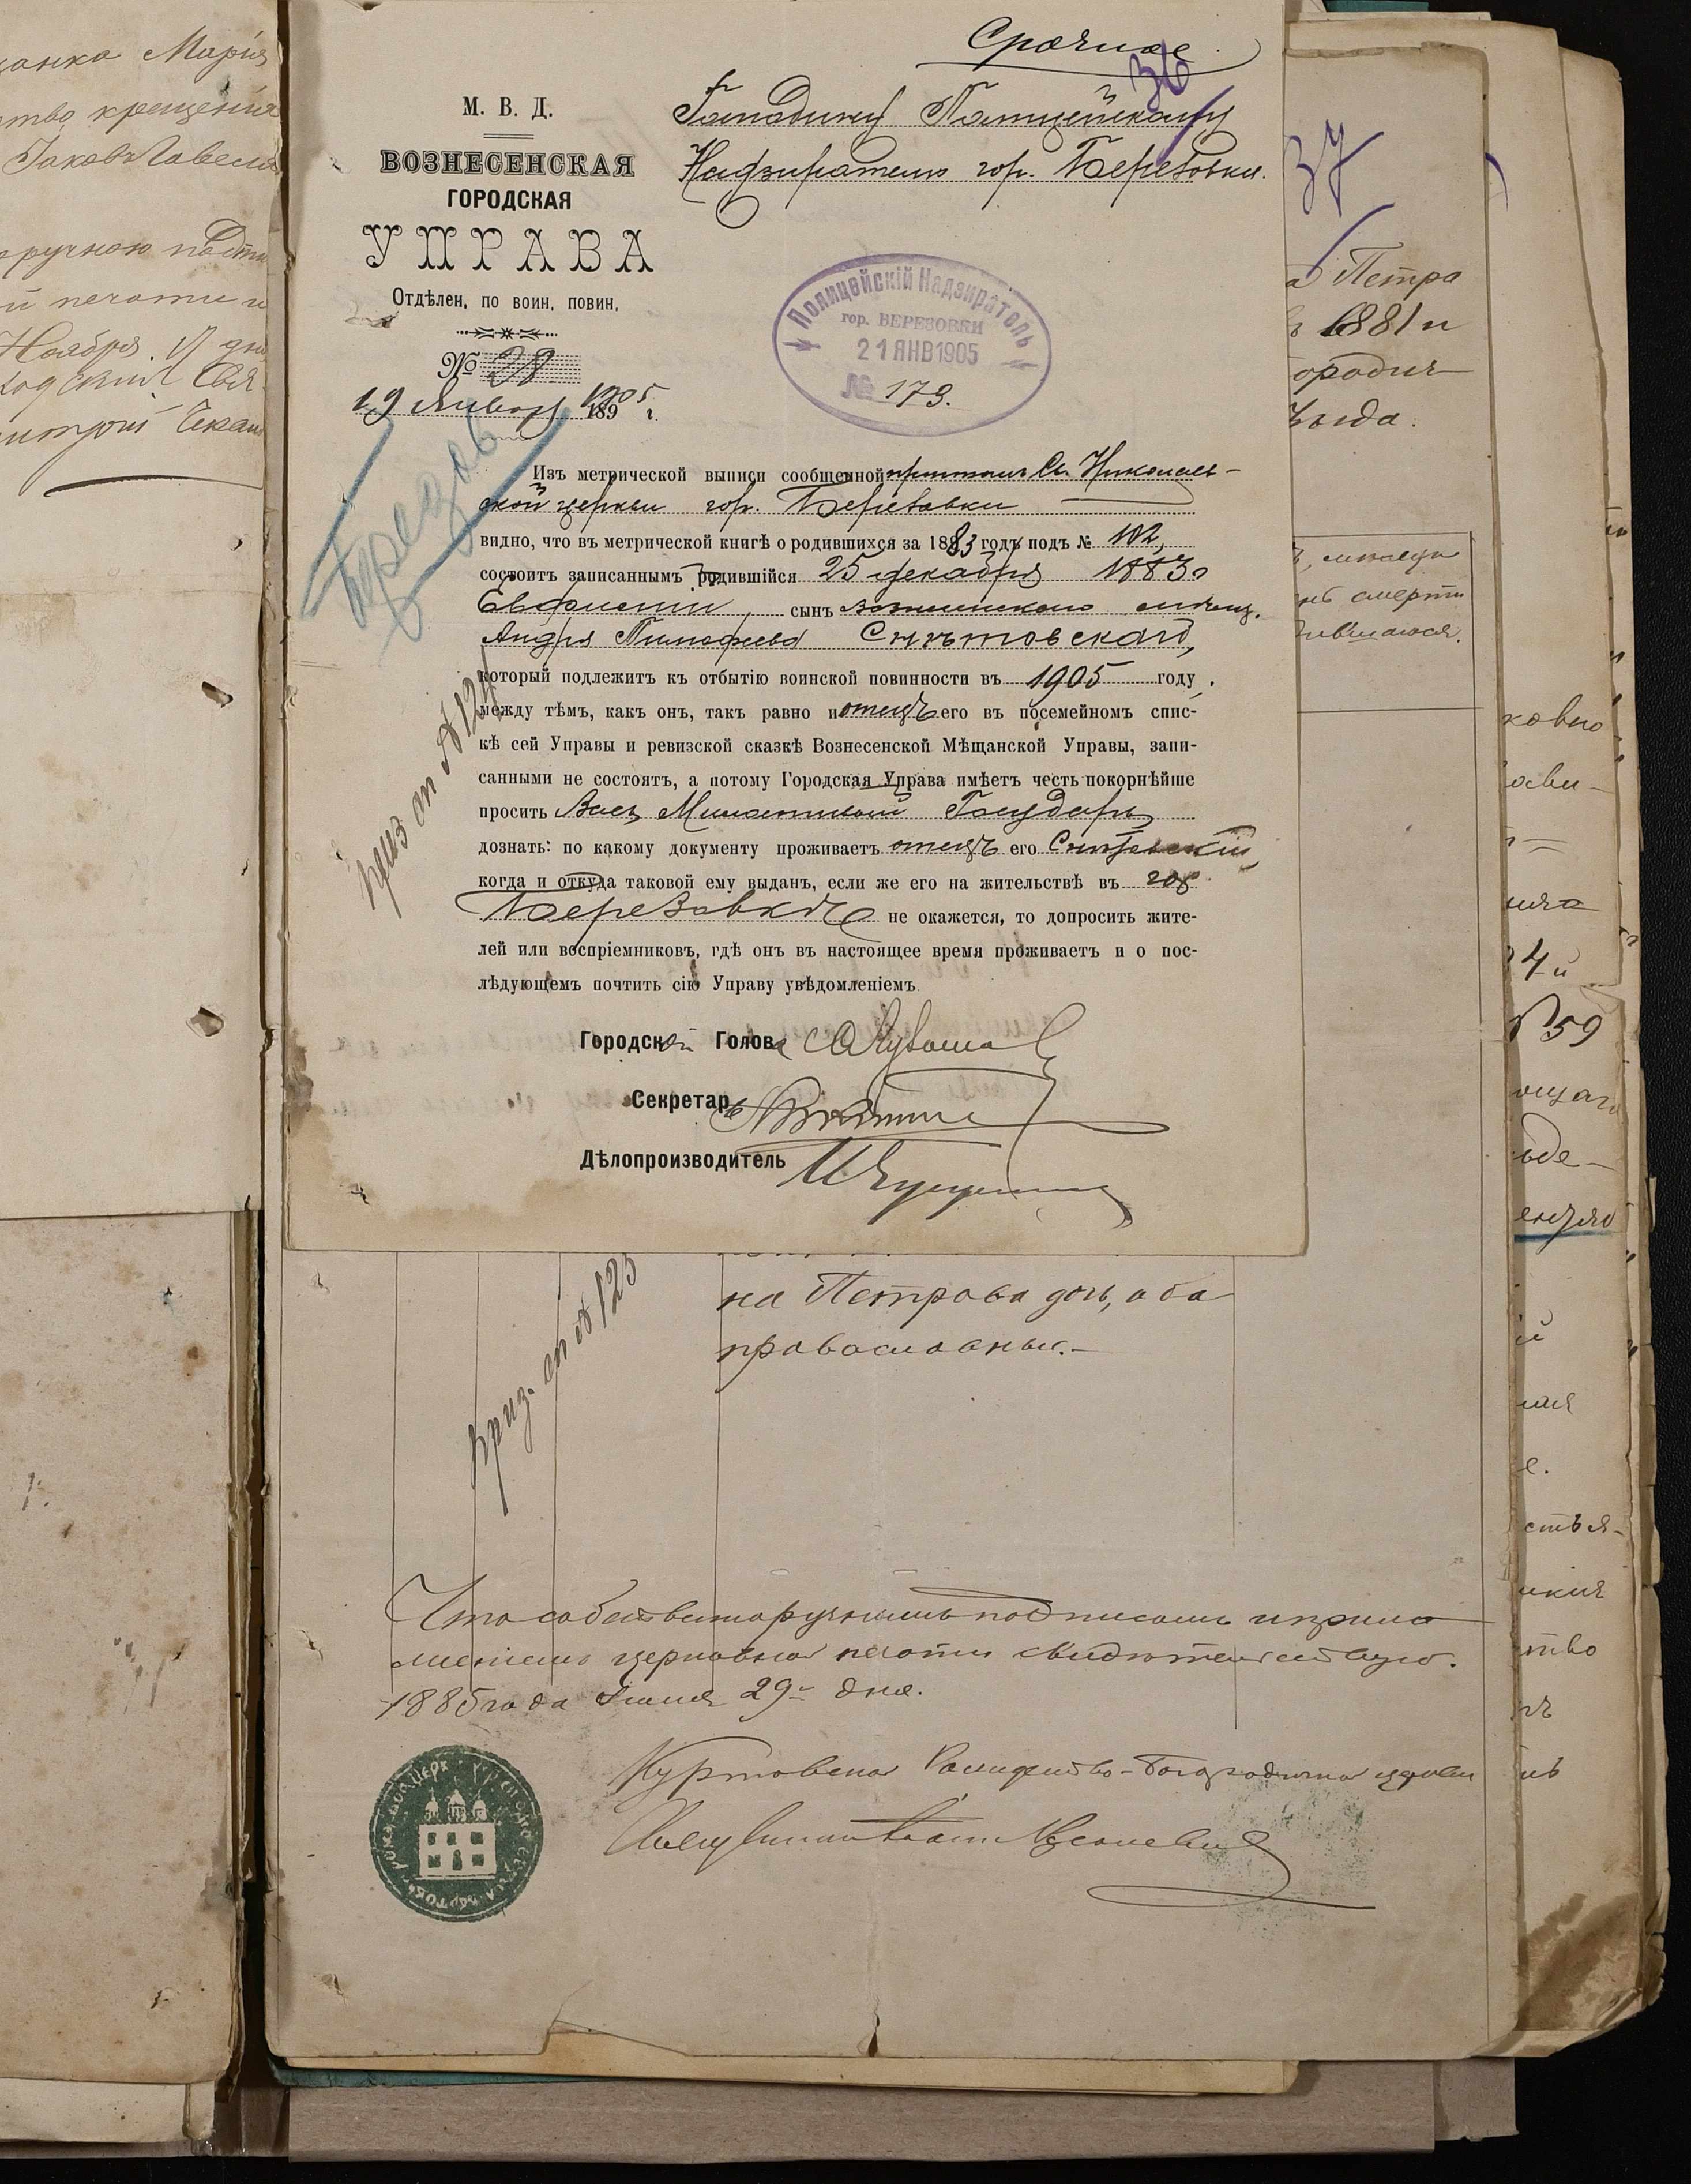 анка Марія
тво крещенія
Іаковъ Павелъ
ручною подпи
й печати и
Ноября. 17 дня
Срочное
36
М. В. Д.
ВОЗНЕСЕНСКАЯ
ГОРОДСКАЯ
УПРАВА
Отдѣлен. по воин. повин.
№ 28
19 Января 1905 г.
189
Господину Полицейскому
Надзирателю гор. Березовки.
Полицейскій Надзиратель
гор. БЕРЕЗОВКИ
21 ЯНВ 1905
№ 173.
Березов
Изъ метрической выписи сообщенной притомъ Св. Николаев-
ской церкви гор. Березовки
видно, что въ метрической книгѣ о родившихся за 1883 годъ подъ № 102,
состоитъ записаннымъ родившійся 25 декабря 1883 г
Евфимій, сынъ вознесенскаго мѣщ.
Андрея Тимофеева Снѣтовскаго,
который подлежитъ къ отбытію воинской повинности въ 1905 году,
между тѣмъ, какъ онъ, такъ равно и отецъ его въ посемейномъ спис-
кѣ сей Управы и ревизской сказкѣ Вознесенской Мѣщанской Управы, запи-
санными не состоятъ, а потому Городская Управа имѣетъ честь покорнѣйше
просить Васъ Милостивый Государь
дознать: по какому документу проживаетъ отецъ его Снѣтовскій,
когда и откуда таковой ему выданъ, если же его на жительствѣ въ гор
Березовкѣ не окажется, то допросить жите-
лей или воспріемниковъ, гдѣ онъ въ настоящее время проживаетъ и о пос-
лѣдующемъ почтить сію Управу увѣдомленіемъ.
Городской Голова
Секретарь
Дѣлопроизводитель
приз. оп № 124
37
а Петра
1881 и
ородич
ѣзда.
нъ смерти
на Петрова дочь, оба
православные.-
приз. оп № 125
Что собственноручнымъ подписомъ и прило
женіемъ церковной печати свидѣтельствую.
1885 года Іюня 29- дня.
Куртовской Рождество-Богородичной церкви
ковно
осви-
4й
№59
ющаго
оде-
енцію
стья-
ство